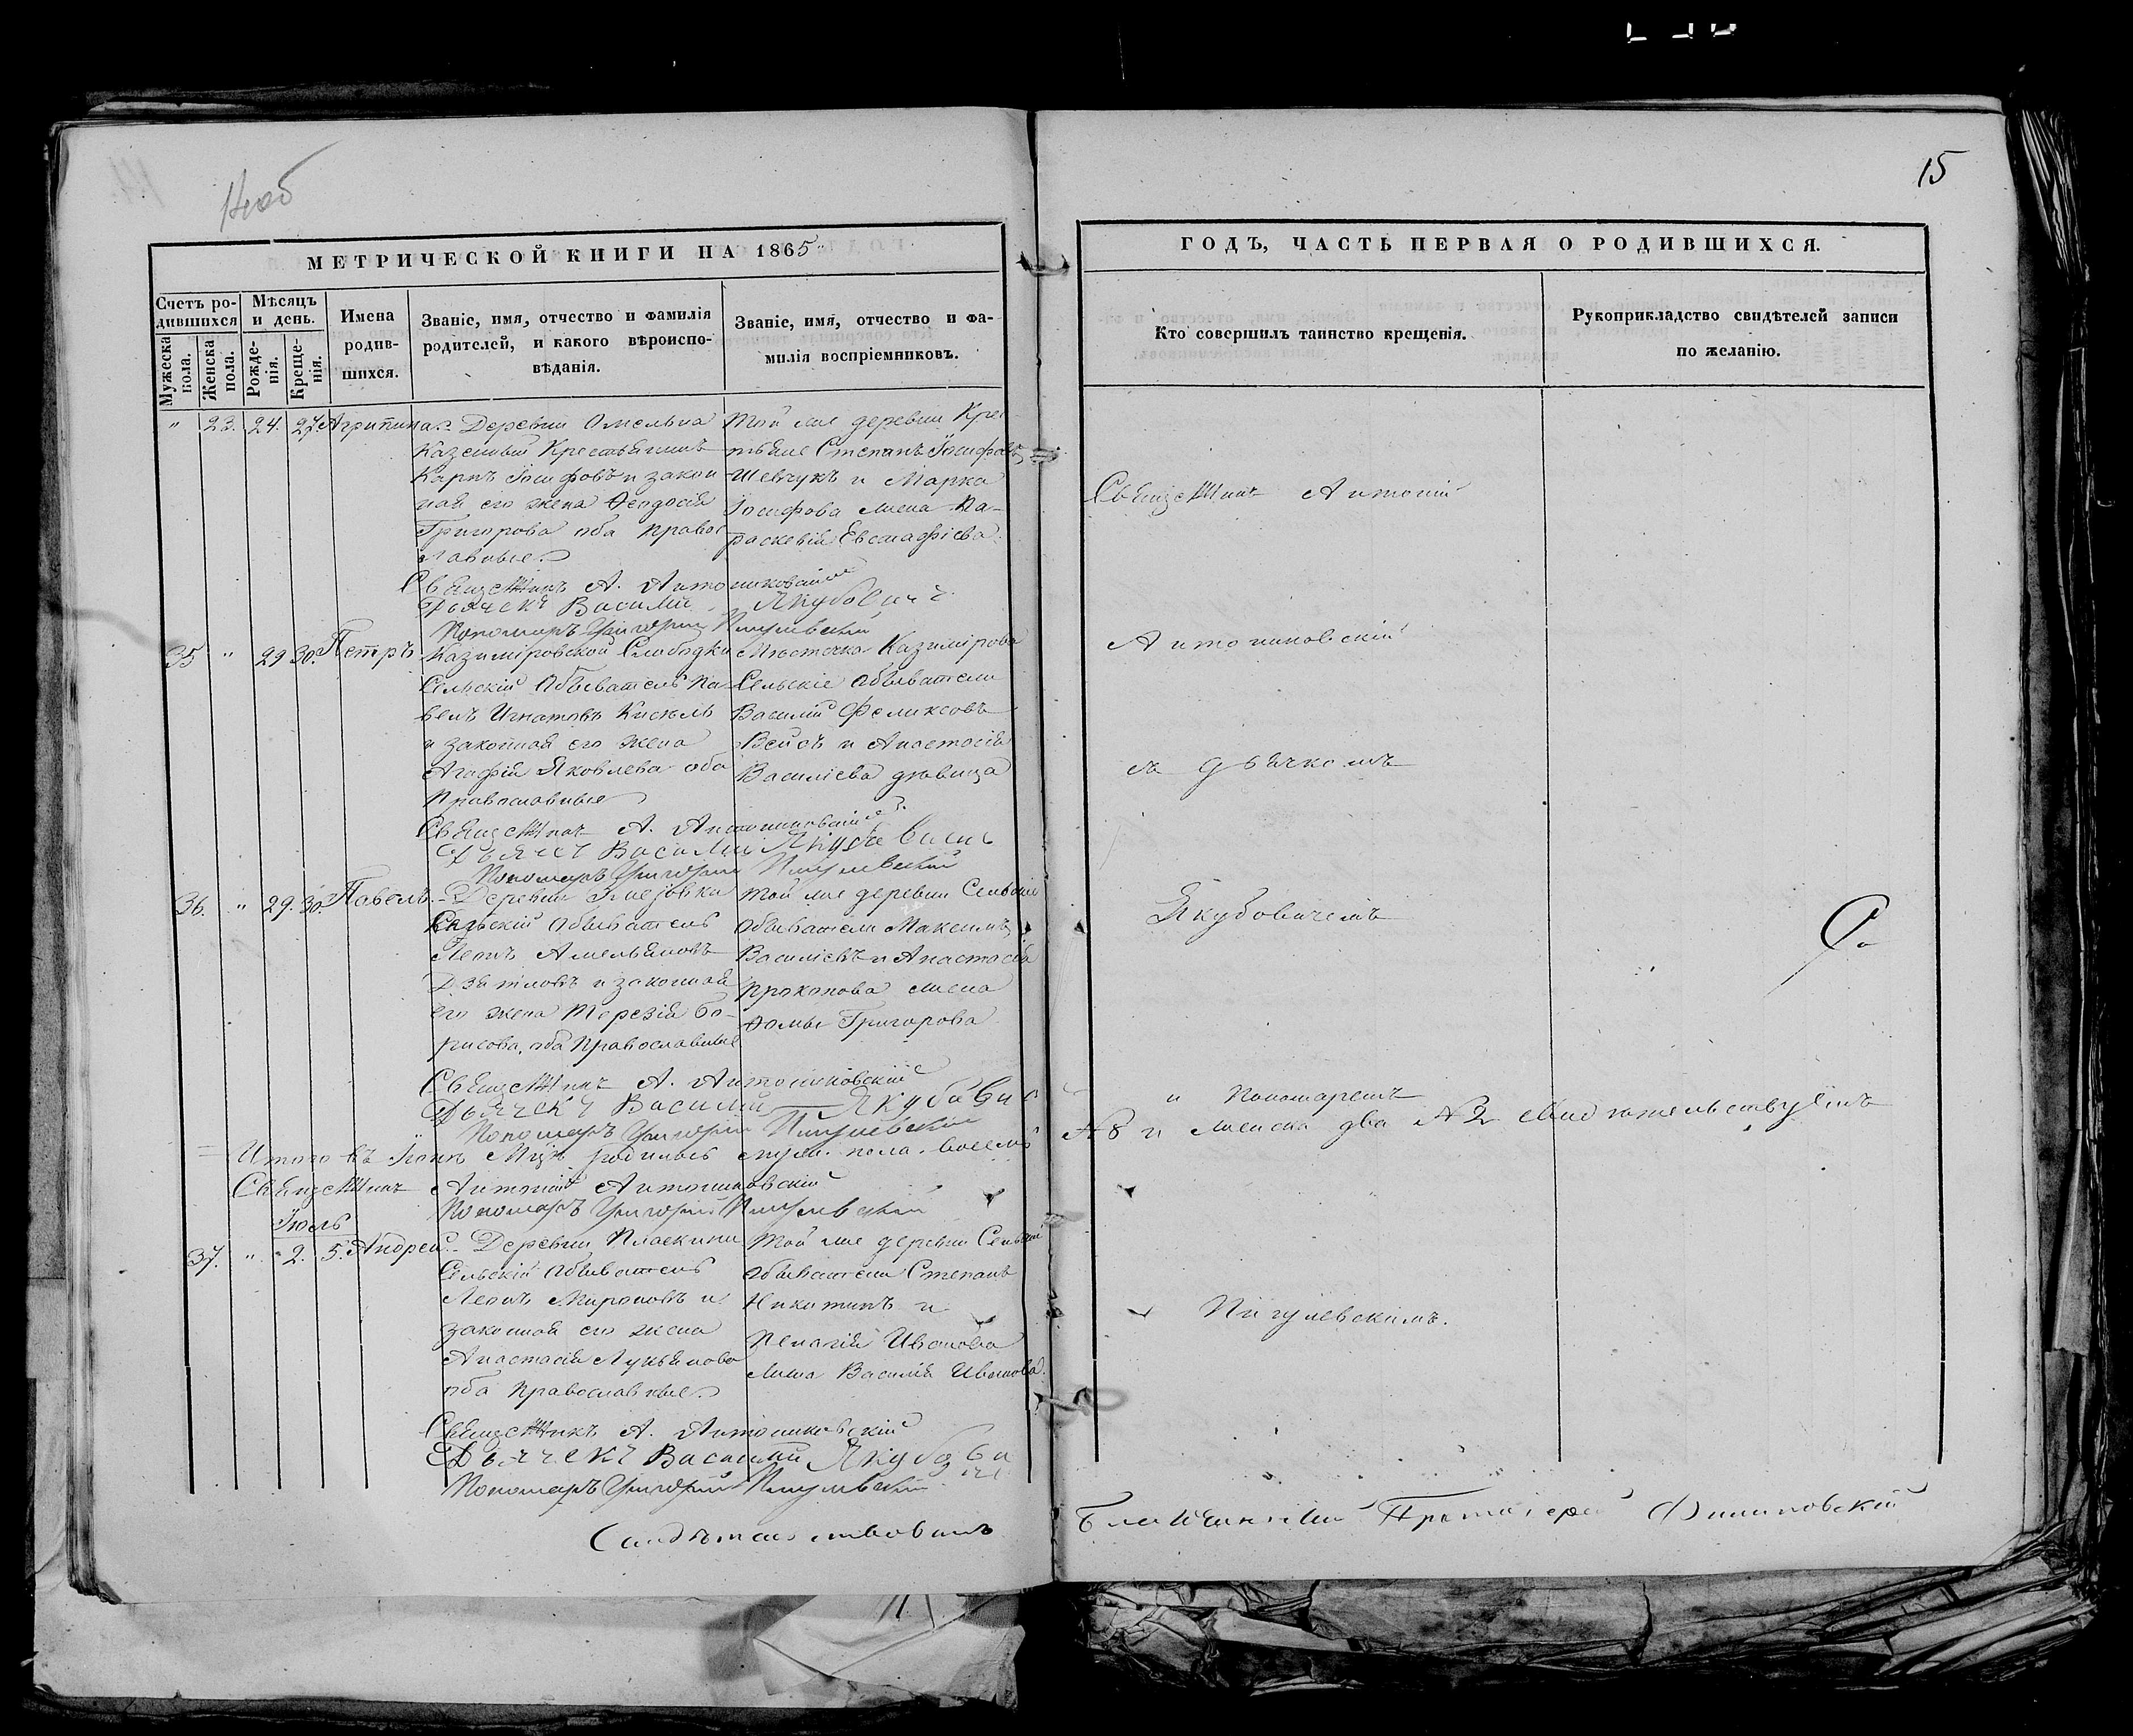 15
МЕТРИЧЕСКОЙ КНИГИ НА 1865
Счетъ родившихся
Мѣсяцъ и день.
Имена родившихся.
Званіе, имя, отчество и фамилія родителей, и какого вѣроисповѣданія.
Званіе, имя, отчество и фамилія воспріемниковъ.
Мужеска пола.
Женска пола.
Рожденія.
Крещенія.
23. 24. 27. Агрипина
Деревни Омельна
Казенный Крестьянинъ
Карпъ Іосифовъ и закон
ная его жена Ѳеодосія
Григорова оба Правос
лавные.
Той же деревни Кре
стьяне Степанъ Іосифовъ
Шевчукъ и Марка
Іосифова жена Па-
раскевія Евстафіева
Священникъ А. Антониковскій
Дьячекъ Василій Якубовичъ
Пономарь Григорій Пигулевскій
35 " 29 30. Петръ
Казиміровской Слободки
Сельскій Обыватель Па-
велъ Игнатовъ Кисель
и законная его жена
Агафія Яковлева оба
Православные
Мѣстечка Казимірова
Сельскіе Обыватели
Василій Феликсовъ
Войсъ и Анастасія
Василіева дѣвица
Священникъ А. Антониковскій
Дьячекъ Василій Якубовичъ
Пономарь Григорій Пигулевскій
36. " 29. 30. Павелъ
Деревни
Сельскій Обыватель
Леонъ Амельяновъ
и законная
его жена Терезія Бо-
рисова, оба Православные
Той же деревни Сельскіе
Обыватели Максимъ
Василіевъ и Анастасія
Прокопова жена
Ѳомы Григорова
Священникъ А. Антониковскій
Дьячекъ Василій Якубовичъ
Пономарь Григорій Пигулевскій
Итого въ Іюнѣ Мцѣ родилось муж. пола восемь
Священникъ Антоній Антониковскій
Пономарь Григорій Пигулевскій
Іюль
37. " 2. 5. Андрей
Деревни Пласкини
Сельскій Обыватель
Леонъ Мироновъ и
законная его жена
Анастасія Лукьянова
оба Православные.
Той же деревни Сельскіе
Обыватели Степанъ
Никитинъ и
Пелагія Иванова
жена Василія Иванова.
Священникъ А. Антониковскій
Дьячекъ Василій Якубовичъ
Пономарь Григорій Пигулевскій
ГОДЪ, ЧАСТЬ ПЕРВАЯ О РОДИВШИХСЯ.
Кто совершилъ таинство крещенія.
Рукоприкладство свидѣтелей записи по желанію.
Священникъ Антоній
Антониковскій
съ дьячкомъ
Якубовичемъ
и Пономаремъ
№ 8 и женска два № 2 свидѣтельствуемъ
Пигулевскимъ.
Свидѣтельствовалъ Благочинный Протоіерей Филиповскій